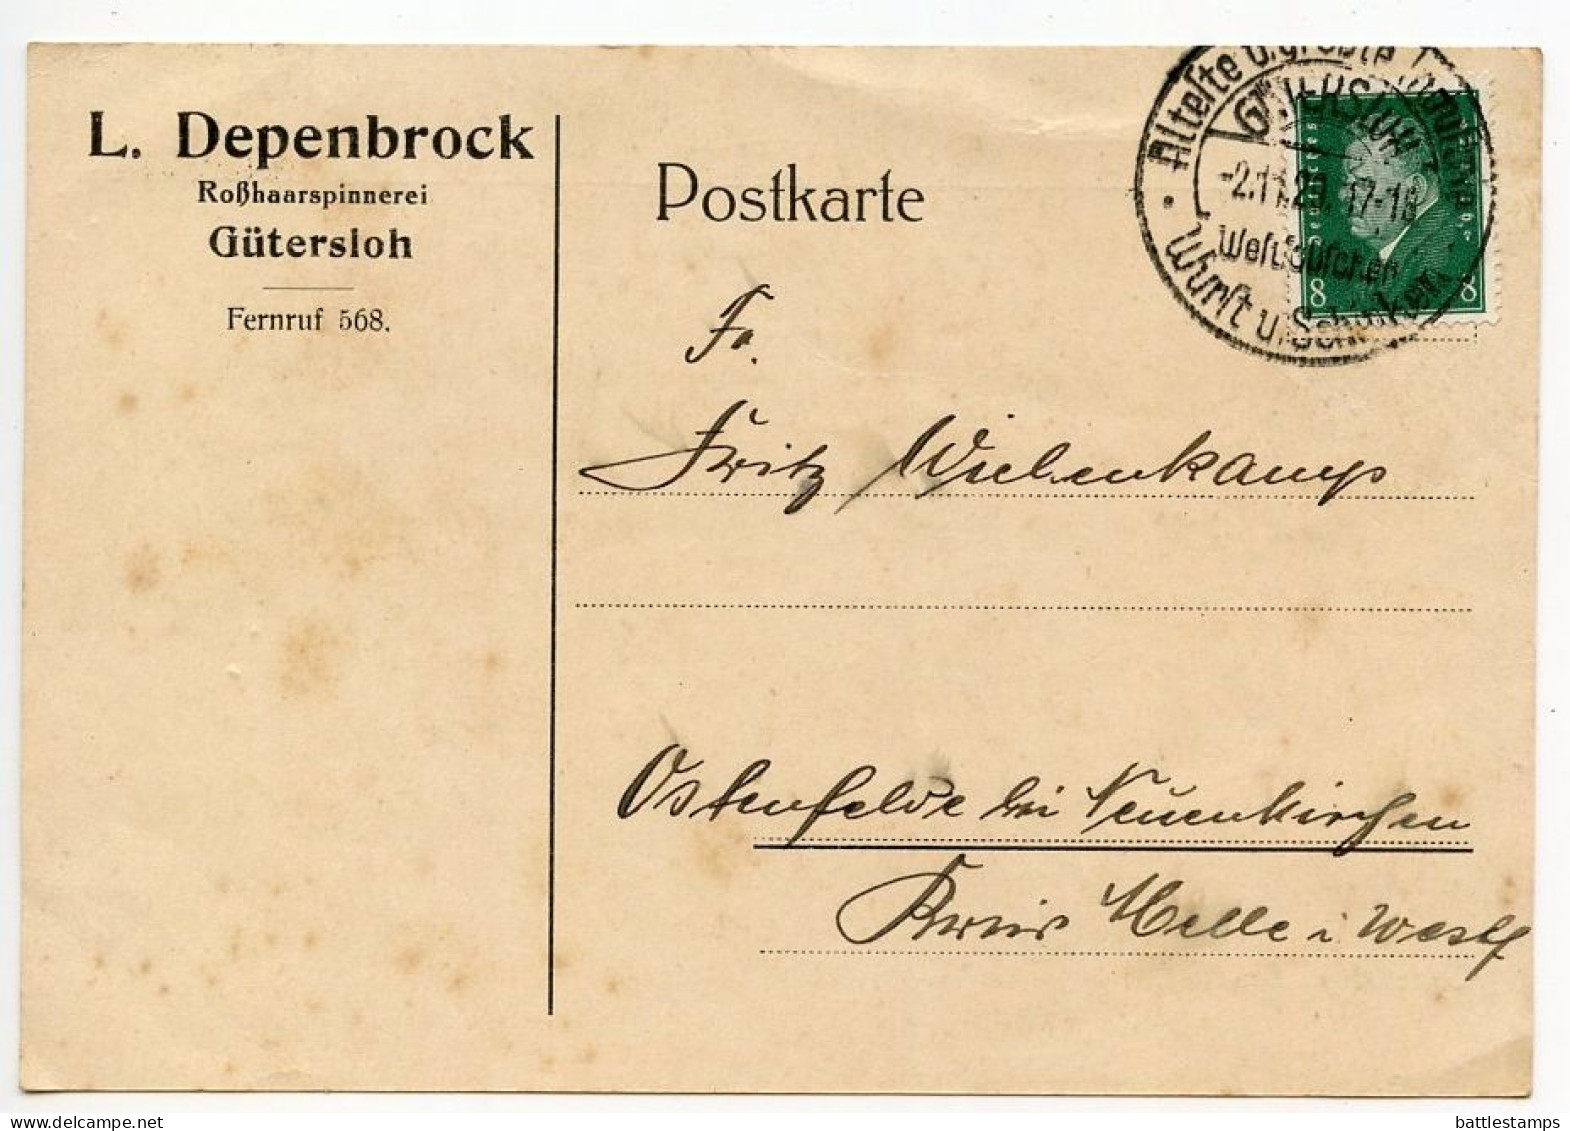 L. Depenbrock
Roßhaarspinnerei
Gütersloh
Fernruf 568.
Postkarte
Älteste u. größte Industrie
GÜTERSLOH 1
-2.11.29. 17-18
Westfälischer
Wurst u. Schinken
Deutsches
8 8
Fa.
Fritz Wiebenkamp
Ostenfelde bei Neuenkirchen
Kreis Melle i Westf
delcampe.net
battlestamps